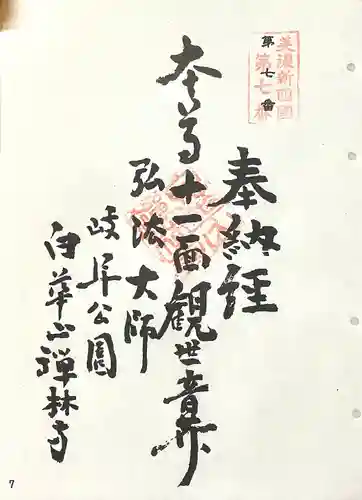 美濃新四国
第七七番
第七番
奉納経
本尊十一面観世音菩薩
弘法大師
岐阜公園
白華山禅林寺
7